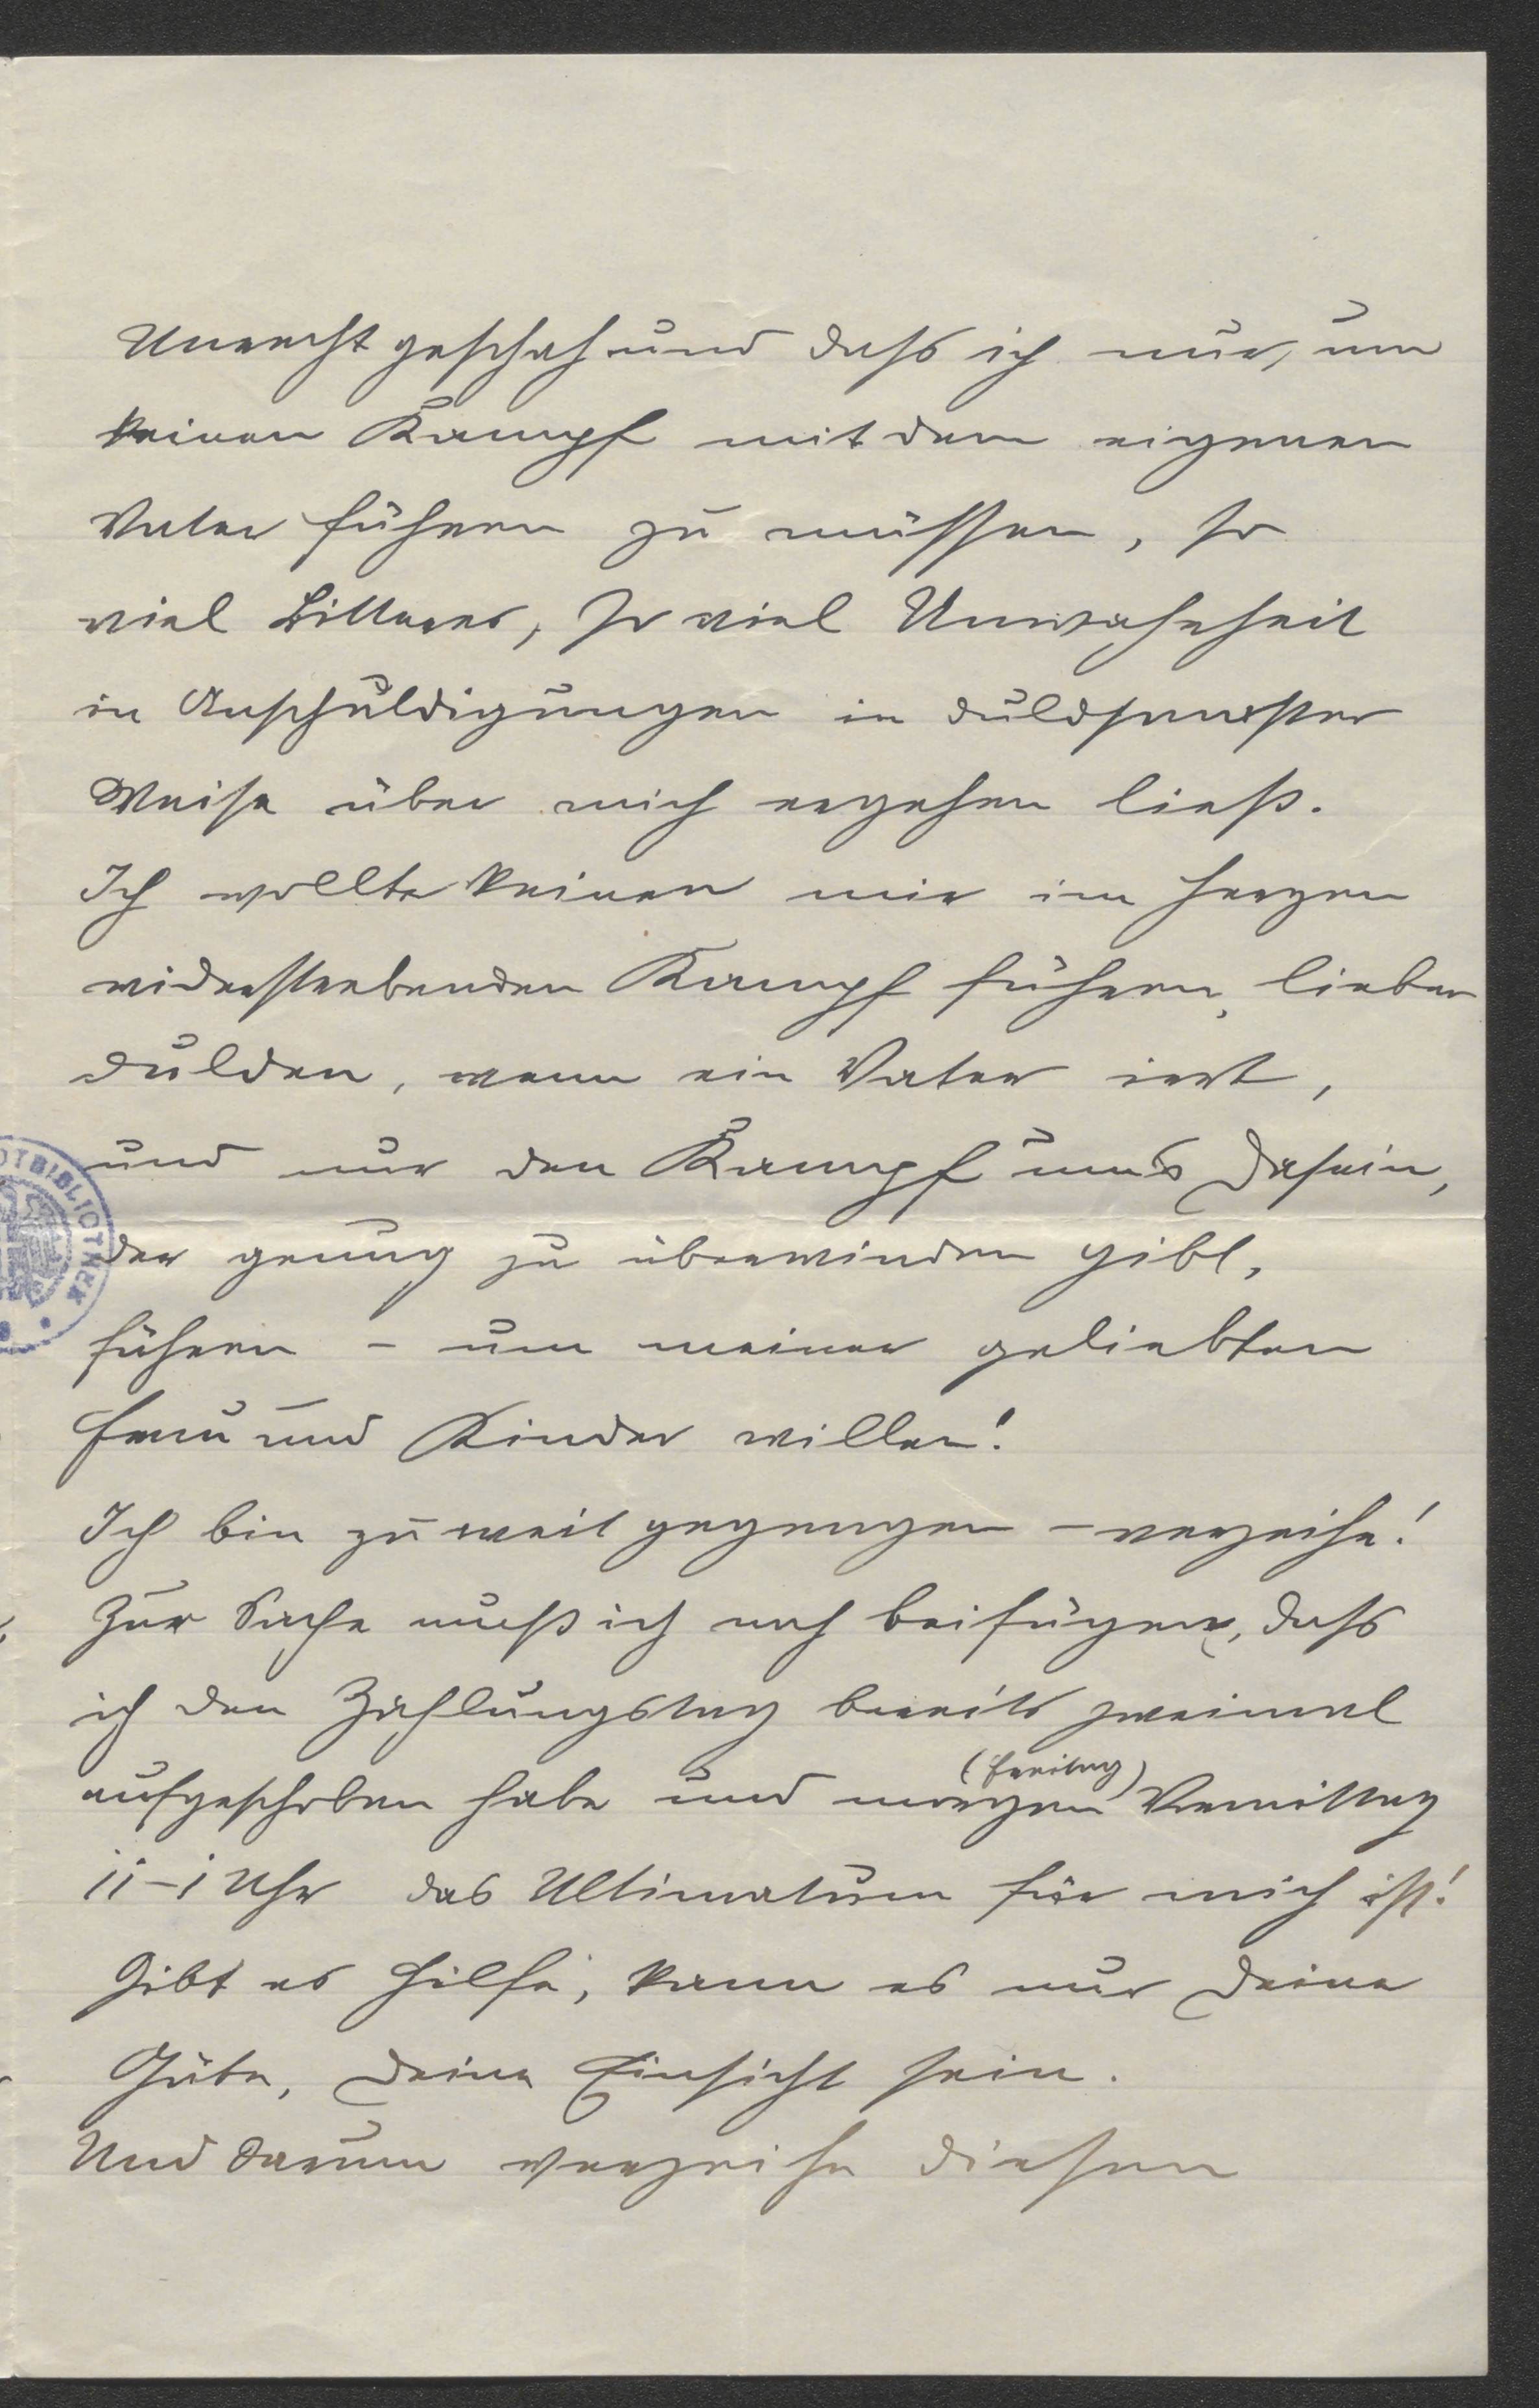 Unrecht geschah und dass ich nur, um
keinen Kampf mit dem eigenen
Vater führen zu müssen, so
viel Bitteres, so viel Unwahrheit
in Anschuldigungen in duldsamster
Weise über mich ergehen ließ.
Ich wollte keinen mir im Herzen
widerstrebenden Kampf führen, lieber
dulden, wenn ein Vater irrt,
und nur den Kampf ums Dasein,
der genug zu überwinden gibt,
führen – um meiner geliebten
Frau und Kinder willen!
Ich bin zu weit gegangen – verzeihe!
Zur Sache muß ich noch beifügen, dass
ich den Zahlungstag bereits zweimal
(Freitag)
aufgeschoben habe und morgen Vormittag
11–1 Uhr das Ultimatum für mich ist!
Gibt es Hilfe, kann es nur Deine
Güte, Deine Einsicht sein.
Und darum verzeihe diesen
OTBIBLIOTHEK